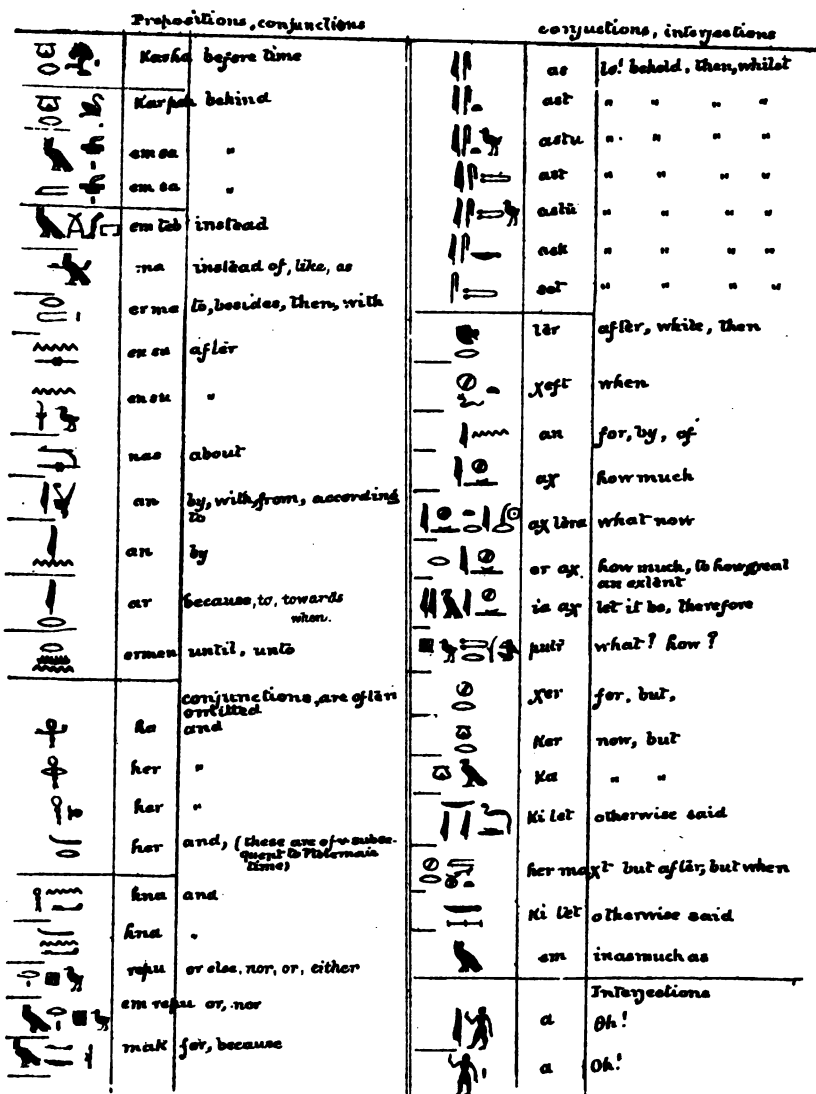 Prepositions, conjunctions
Karha before time
Karpeh behind
em sa "
em sa "
em teb instead
ma instead of, like, as
er ma to, besides, then, with
en su after
en su "
nas about
an by, with, from, according
to
an by
ar because, to, towards
when.
ermen until, unto
conjunctions, are often
omitted
ha and
her "
her "
her and, (these are of subse-
quent to Ptolemaic
time)
hna and
hna "
repu or else, nor, or, either
em repu or, nor
mak for, because
conjuctions, interjections
as lo! behold, then, whilst
ast " " " "
astu " " " "
ast " " " "
astu " " " "
ask " " " "
set " " " "
ter after, while, then
χeft when
an for, by, of
aχ how much
aχ tera what now
er aχ how much, to how great
an extent
ia aχ let it be, therefore
putr what? how?
χer for, but,
Ker now, but
Ka " "
Ki tet otherwise said
her maχt but after, but when
Ki tet otherwise said
em inasmuch as
Interjections
a Oh!
a Oh!